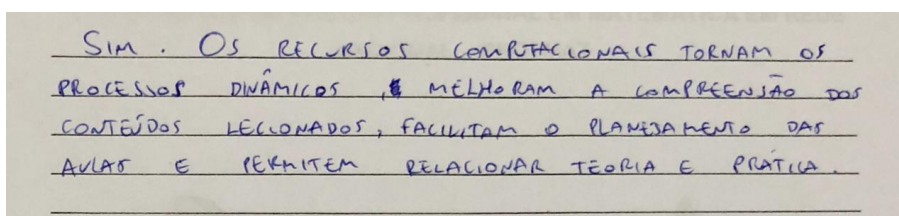 SIM. OS RECURSOS COMPUTACIONAIS TORNAM OS
PROCESSOS DINÂMICOS, MELHORAM A COMPREENSÃO DOS
CONTEÚDOS LECIONADOS, FACILITAM O PLANEJAMENTO DAS
AULAS E PERMITEM RELACIONAR TEORIA E PRÁTICA.